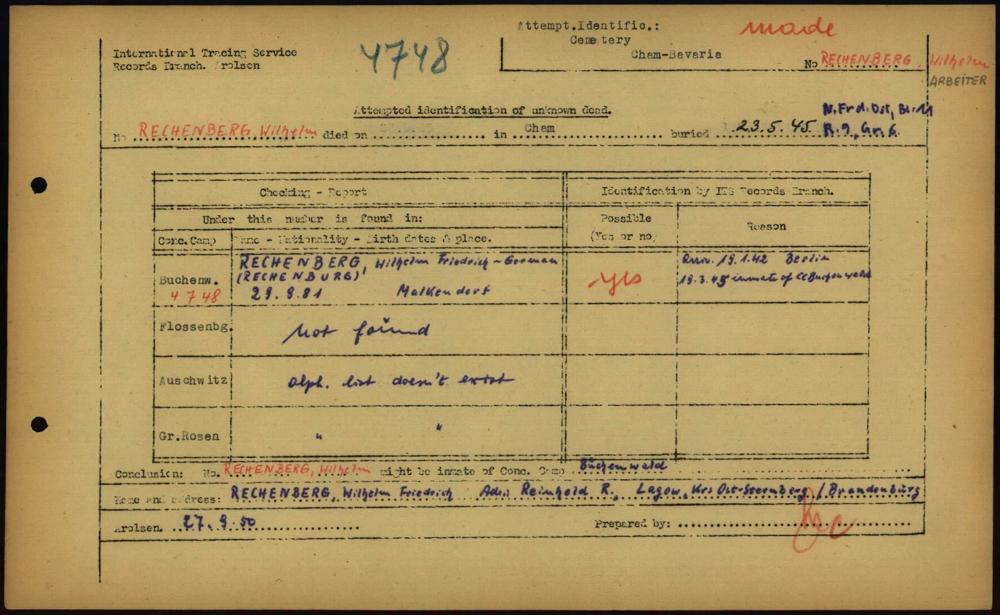 Attempt.Identific.: made
Cemetery
International Tracing Service
Records Branch. Arolsen
4748
Cham-Bavaria
No RECHENBERG, Wilhelm
ARBEITER
Attempted identification of unknown dead.
N.Frdl.Ost,
No RECHENBERG, Wilhelm died on ............ in Cham ............ buried 23.5.45 R.9, Gr.6.
Checking - Report
Identification by ITS Records Branch.
Under this number is found in:
Possible
(Yes or no)
Reason
Conc.Camp
Name - Nationality - Birth dates & place.
Buchenw.
4748
RECHENBERG, Wilhelm Friedrich - German
(RECHENBURG)
29.9.81 Malkendorf
yes
19.1.42 Berlin
19.3.45 inmate of CC Buchenwald
Flossenbg.
Not found
Auschwitz
alph. list doesn't exist
Gr.Rosen
" "
Conclusion: No. RECHENBERG, Wilhelm might be inmate of Conc. Camp Buchenwald
Name and address: RECHENBERG, Wilhelm Friedrich Adr. Reinhold R., Lagow, Krs Ost-Sternberg / Brandenburg
Arolsen. 27.9.50
Prepared by: